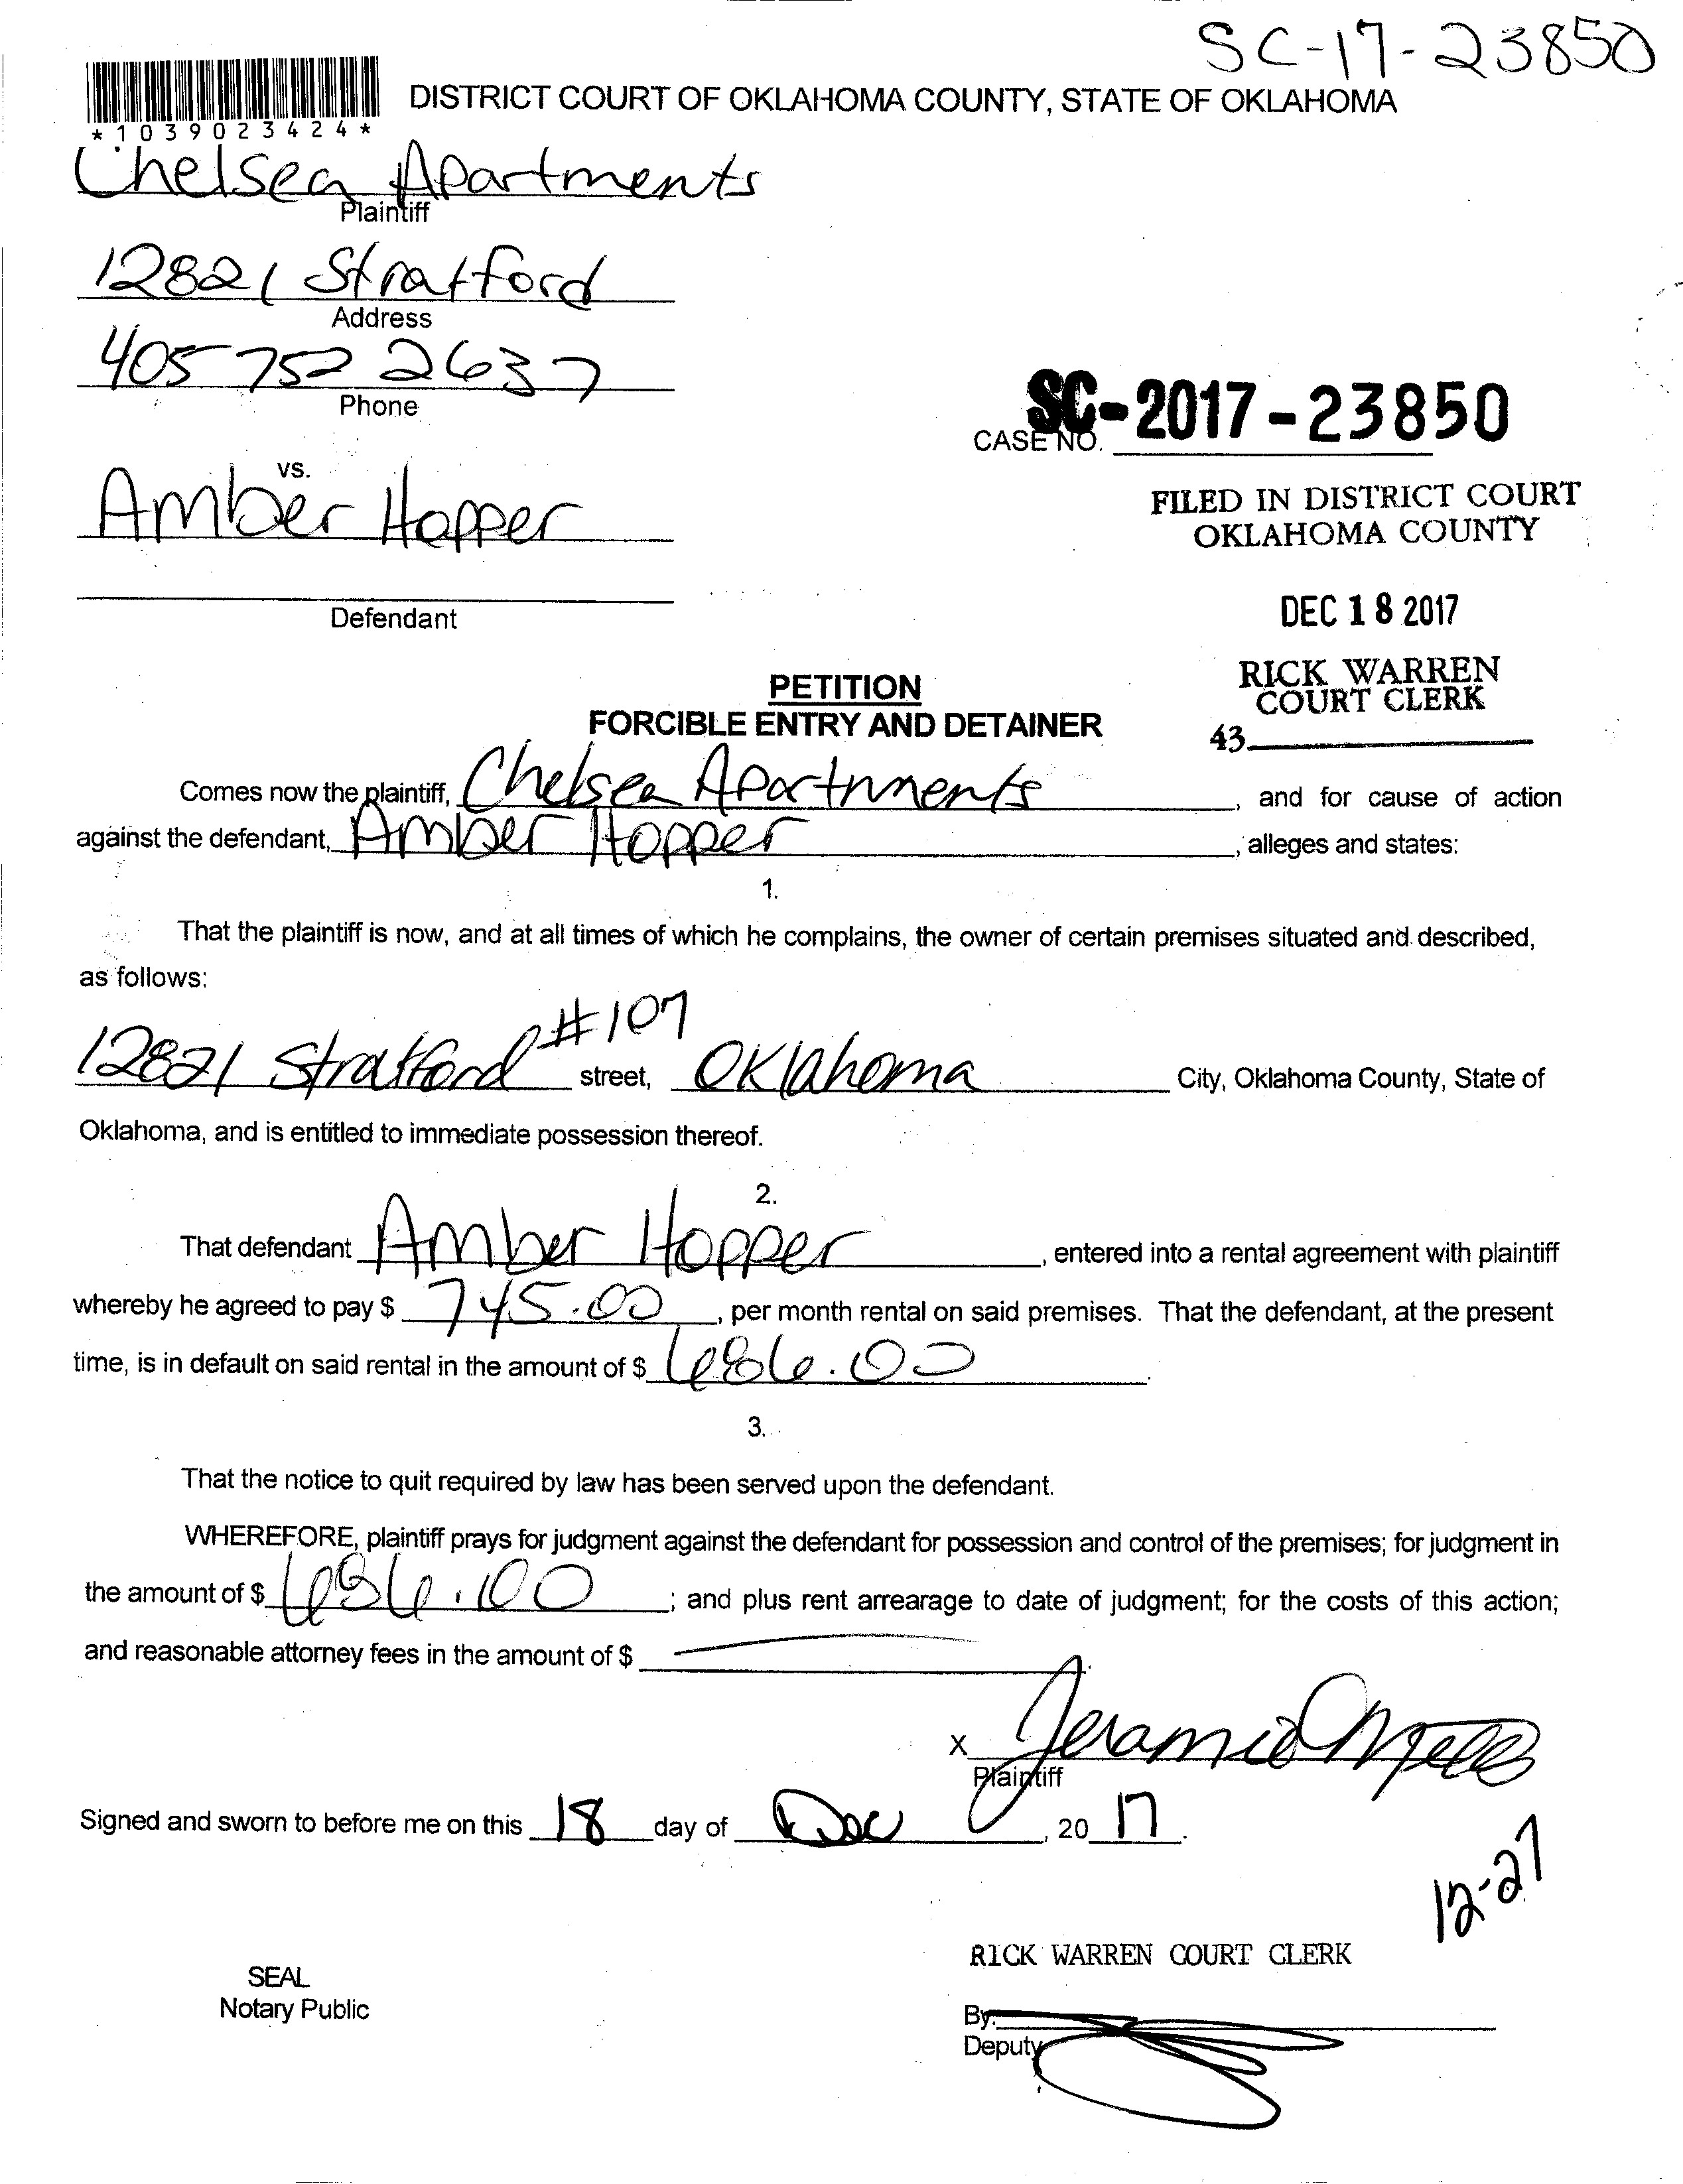 SC-17-23850
DISTRICT COURT OF OKLAHOMA COUNTY, STATE OF OKLAHOMA
*1039023424*
Chelsea Apartments
Plaintiff
12821 Stratford
Address
405 752 2637
Phone
SC-2017-23850
CASE NO.
vs.
Amber Hopper
FILED IN DISTRICT COURT
OKLAHOMA COUNTY
Defendant
DEC 18 2017
RICK WARREN
COURT CLERK
43
PETITION
FORCIBLE ENTRY AND DETAINER
Comes now the plaintiff, Chelsea Apartments, and for cause of action
against the defendant, Amber Hopper, alleges and states:
1.
That the plaintiff is now, and at all times of which he complains, the owner of certain premises situated and described,
as follows:
12821 Stratford #107 street, Oklahoma City, Oklahoma County, State of
Oklahoma, and is entitled to immediate possession thereof.
2.
That defendant Amber Hopper, entered into a rental agreement with plaintiff
whereby he agreed to pay $ 745.00, per month rental on said premises. That the defendant, at the present
time, is in default on said rental in the amount of $ 686.00.
3.
That the notice to quit required by law has been served upon the defendant.
WHEREFORE, plaintiff prays for judgment against the defendant for possession and control of the premises; for judgment in
the amount of $ 686.00; and plus rent arrearage to date of judgment; for the costs of this action;
and reasonable attorney fees in the amount of $
X
Plaintiff
Signed and sworn to before me on this 18 day of Dec, 20 17.
12-27
RICK WARREN COURT CLERK
SEAL
Notary Public
By:
Deputy